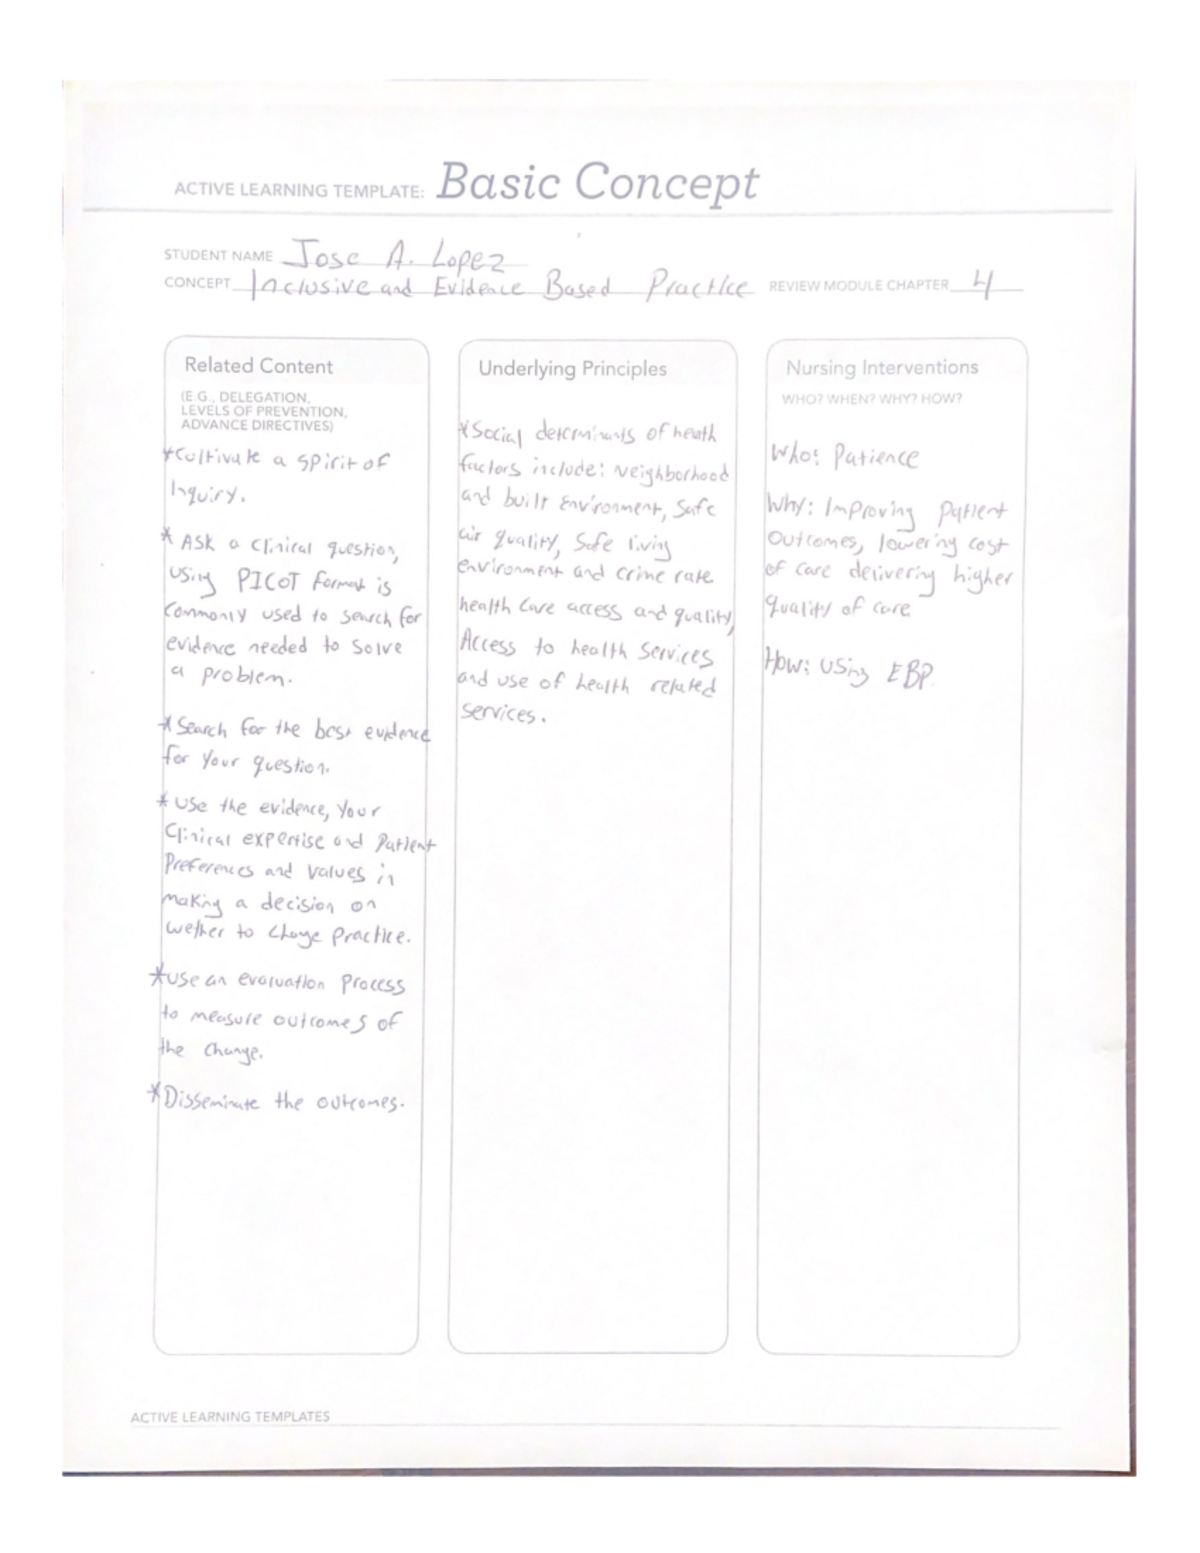 ACTIVE LEARNING TEMPLATE: Basic Concept
STUDENT NAME Jose A. Lopez
CONCEPT Inclusive and Evidence Based Practice REVIEW MODULE CHAPTER 4
Related Content
(E.G., DELEGATION,
LEVELS OF PREVENTION,
ADVANCE DIRECTIVES)
*Cultivate a spirit of
Inquiry.
* Ask a clinical question,
using PICOT format is
commonly used to search for
evidence needed to solve
a problem.
* Search for the best evidence
for your question.
* use the evidence, your
Clinical expertise and Patient
Preferences and values in
making a decision on
wether to change practice.
*use an evaluation process
to measure outcomes of
the change.
*Disseminate the outcomes.
Underlying Principles
*Social determinants of health
factors include: Neighborhood
and built Environment, Safe
air quality, Safe living
environment and crime rate
health care access and quality,
Access to health services
and use of health related
services.
Nursing Interventions
WHO? WHEN? WHY? HOW?
Who: Patience
Why: Improving patient
outcomes, lowering cost
of care delivering higher
quality of care
How: using EBP.
ACTIVE LEARNING TEMPLATES